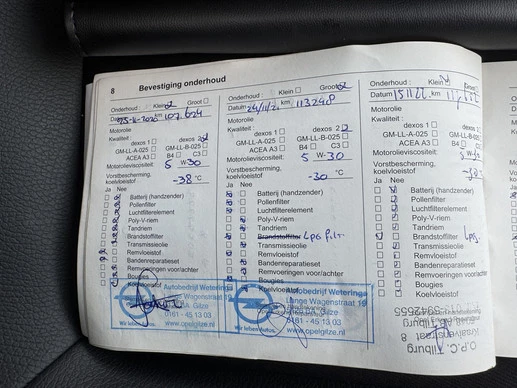 8 Bevestiging onderhoud
Onderhoud : Klein Groot
Datum 25-11-2020 km 107.624
Motorolie
Kwaliteit :
dexos 1 dexos 2
GM-LL-A-025 GM-LL-B-025
ACEA A3 B4 C3
Motorolieviscositeit: 5 W-30
Vorstbescherming,
koelvloeistof -38 °C
Ja Nee
Batterij (handzender)
Pollenfilter
Luchtfilterelement
Poly-V-riem
Tandriem
Brandstoffilter
Transmissieolie
Remvloeistof
Bandenreparatieset
Remvoeringen voor/achter
Bougies
Koelvloeistof
Autobedrijf Weterings
Lange Wagenstraat
Gilze
0161 - 45 13 03
www.opelgilze.nl
Wir leben Autos.
Onderhoud : Klein Groot
Datum 24/11/21 km 113248
Motorolie
Kwaliteit :
dexos 1 dexos 2
GM-LL-A-025 GM-LL-B-025
ACEA A3 B4 C3
Motorolieviscositeit: 5 W-30
Vorstbescherming,
koelvloeistof -30 °C
Ja Nee
Batterij (handzender)
Pollenfilter
Luchtfilterelement
Poly-V-riem
Tandriem
Brandstoffilter LPG filt.
Transmissieolie
Remvloeistof
Bandenreparatieset
Remvoeringen voor/achter
Bougies
Koelvloeistof
Autobedrijf Weterings
Lange Wagenstraat
Gilze
0161 - 45 13 03
www.opelgilze.nl
Wir leben Autos.
Onderhoud : Klein Groot
Datum km
Motorolie
Kwaliteit :
dexos 1
GM-LL-A-025
ACEA A3 B4
Motorolieviscositeit:
Vorstbescherming,
koelvloeistof
Ja Nee
Batterij (handzender)
Pollenfilter
Luchtfilterelement
Poly-V-riem
Tandriem
Brandstoffilter LPG.
Transmissieolie
Remvloeistof
Bandenreparatieset
Remvoeringen voor/achter
Bougies
Koelvloeistof
O.P.C. Tilburg
Kraaivenstraat 8
Tilburg